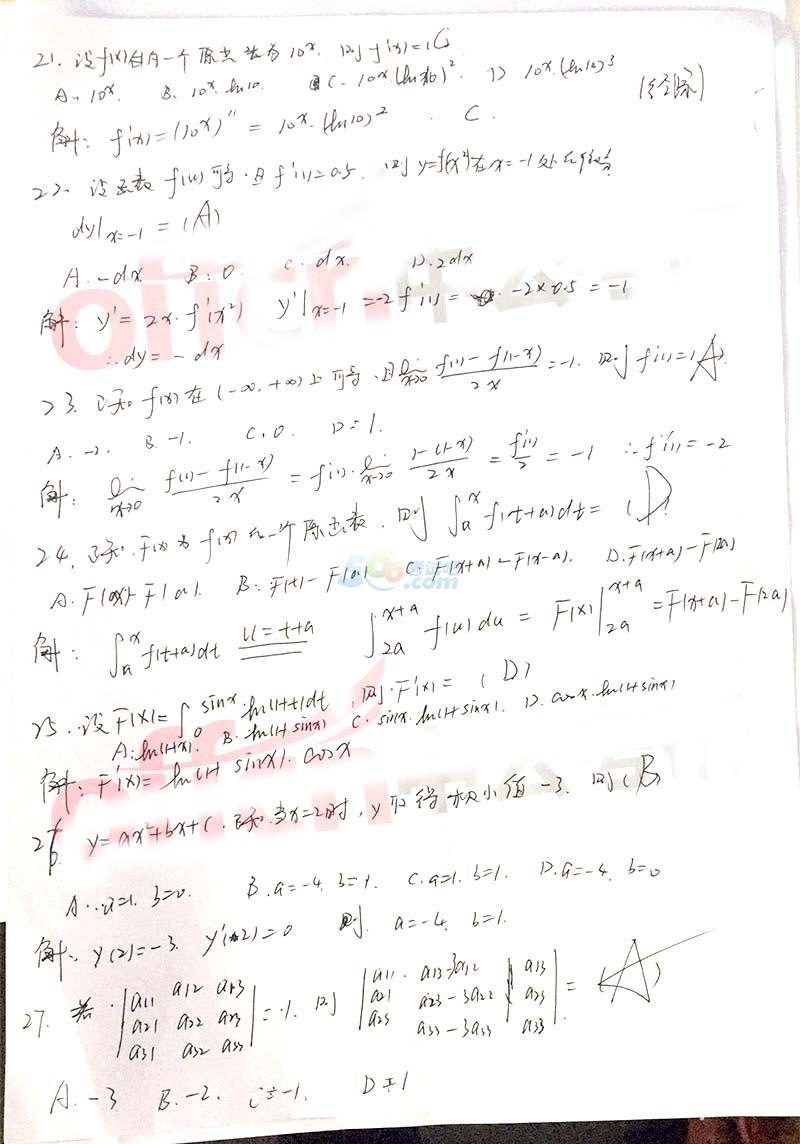 21. 设f(x)的一个原函数为10^x. 则f'(x)=(C
A. 10^x. B. 10^x ln10. C. 10^x(ln10)^2. D 10^x.(ln10)^3
解: f'(x)=(10^x)''=10^x.(ln10)^2. C.
22. 设函数f(u)可导.且f'(1)=0.5. 则y=f(x^2)在x=-1处
dy|x=-1 =(A)
A. -dx B. 0 C. dx. D. 2dx
解: y'=2x.f'(x^2) y'|x=-1 =-2f'(1)= -2×0.5=-1
∴dy=-dx
23. 已知f(x)在(-∞,+∞)上可导.且lim x→0 f(1)-f(1-x)/2x=-1. 则f'(1)=(A)
A. -2. B. -1. C. 0. D=1.
解: lim x→0 f(1)-f(1-x)/2x = f'(1).lim x→0 1-(1-x)/2x = f'(1)/2 = -1 ∴f'(1)=-2
24. 已知.F(x)为f(x)的一个原函数.则∫a^x f(t+a)dt=(D)
A. F(x)-F(a). B. F(t)-F(a) C. F(x+a)-F(x-a). D. F(x+a)-F(2a)
解: ∫a^x f(t+a)dt u=t+a ∫2a^x+a f(u)du = F(x)|2a^x+a =F(x+a)-F(2a)
25. 设F(x)=∫0^sinx.ln(1+t)dt,则.F'(x)=(D)
A: ln(1+x). B. ln(1+sinx) C. sinx.ln(1+sinx). D. cosx.ln(1+sinx)
解: F'(x)=ln(1+sinx).cosx
26. y=ax^2+bx+c.已知.当x=2时,y取得极小值-3.则(B)
A. a=1. b=0. B. a=-4. b=1. C. a=1. b=1. D. a=-4. b=0
解: y(2)=-3. y'(2)=0 则 a=-4. b=1.
27. 若|a11 a12 a13
a21 a22 a23
a31 a32 a33|=1. 则|a11. a13-3a12 a13
a21 a23-3a22 a23
a23 a33-3a33 a33|=(A)
A. -3 B. -2. C=-1. D=1